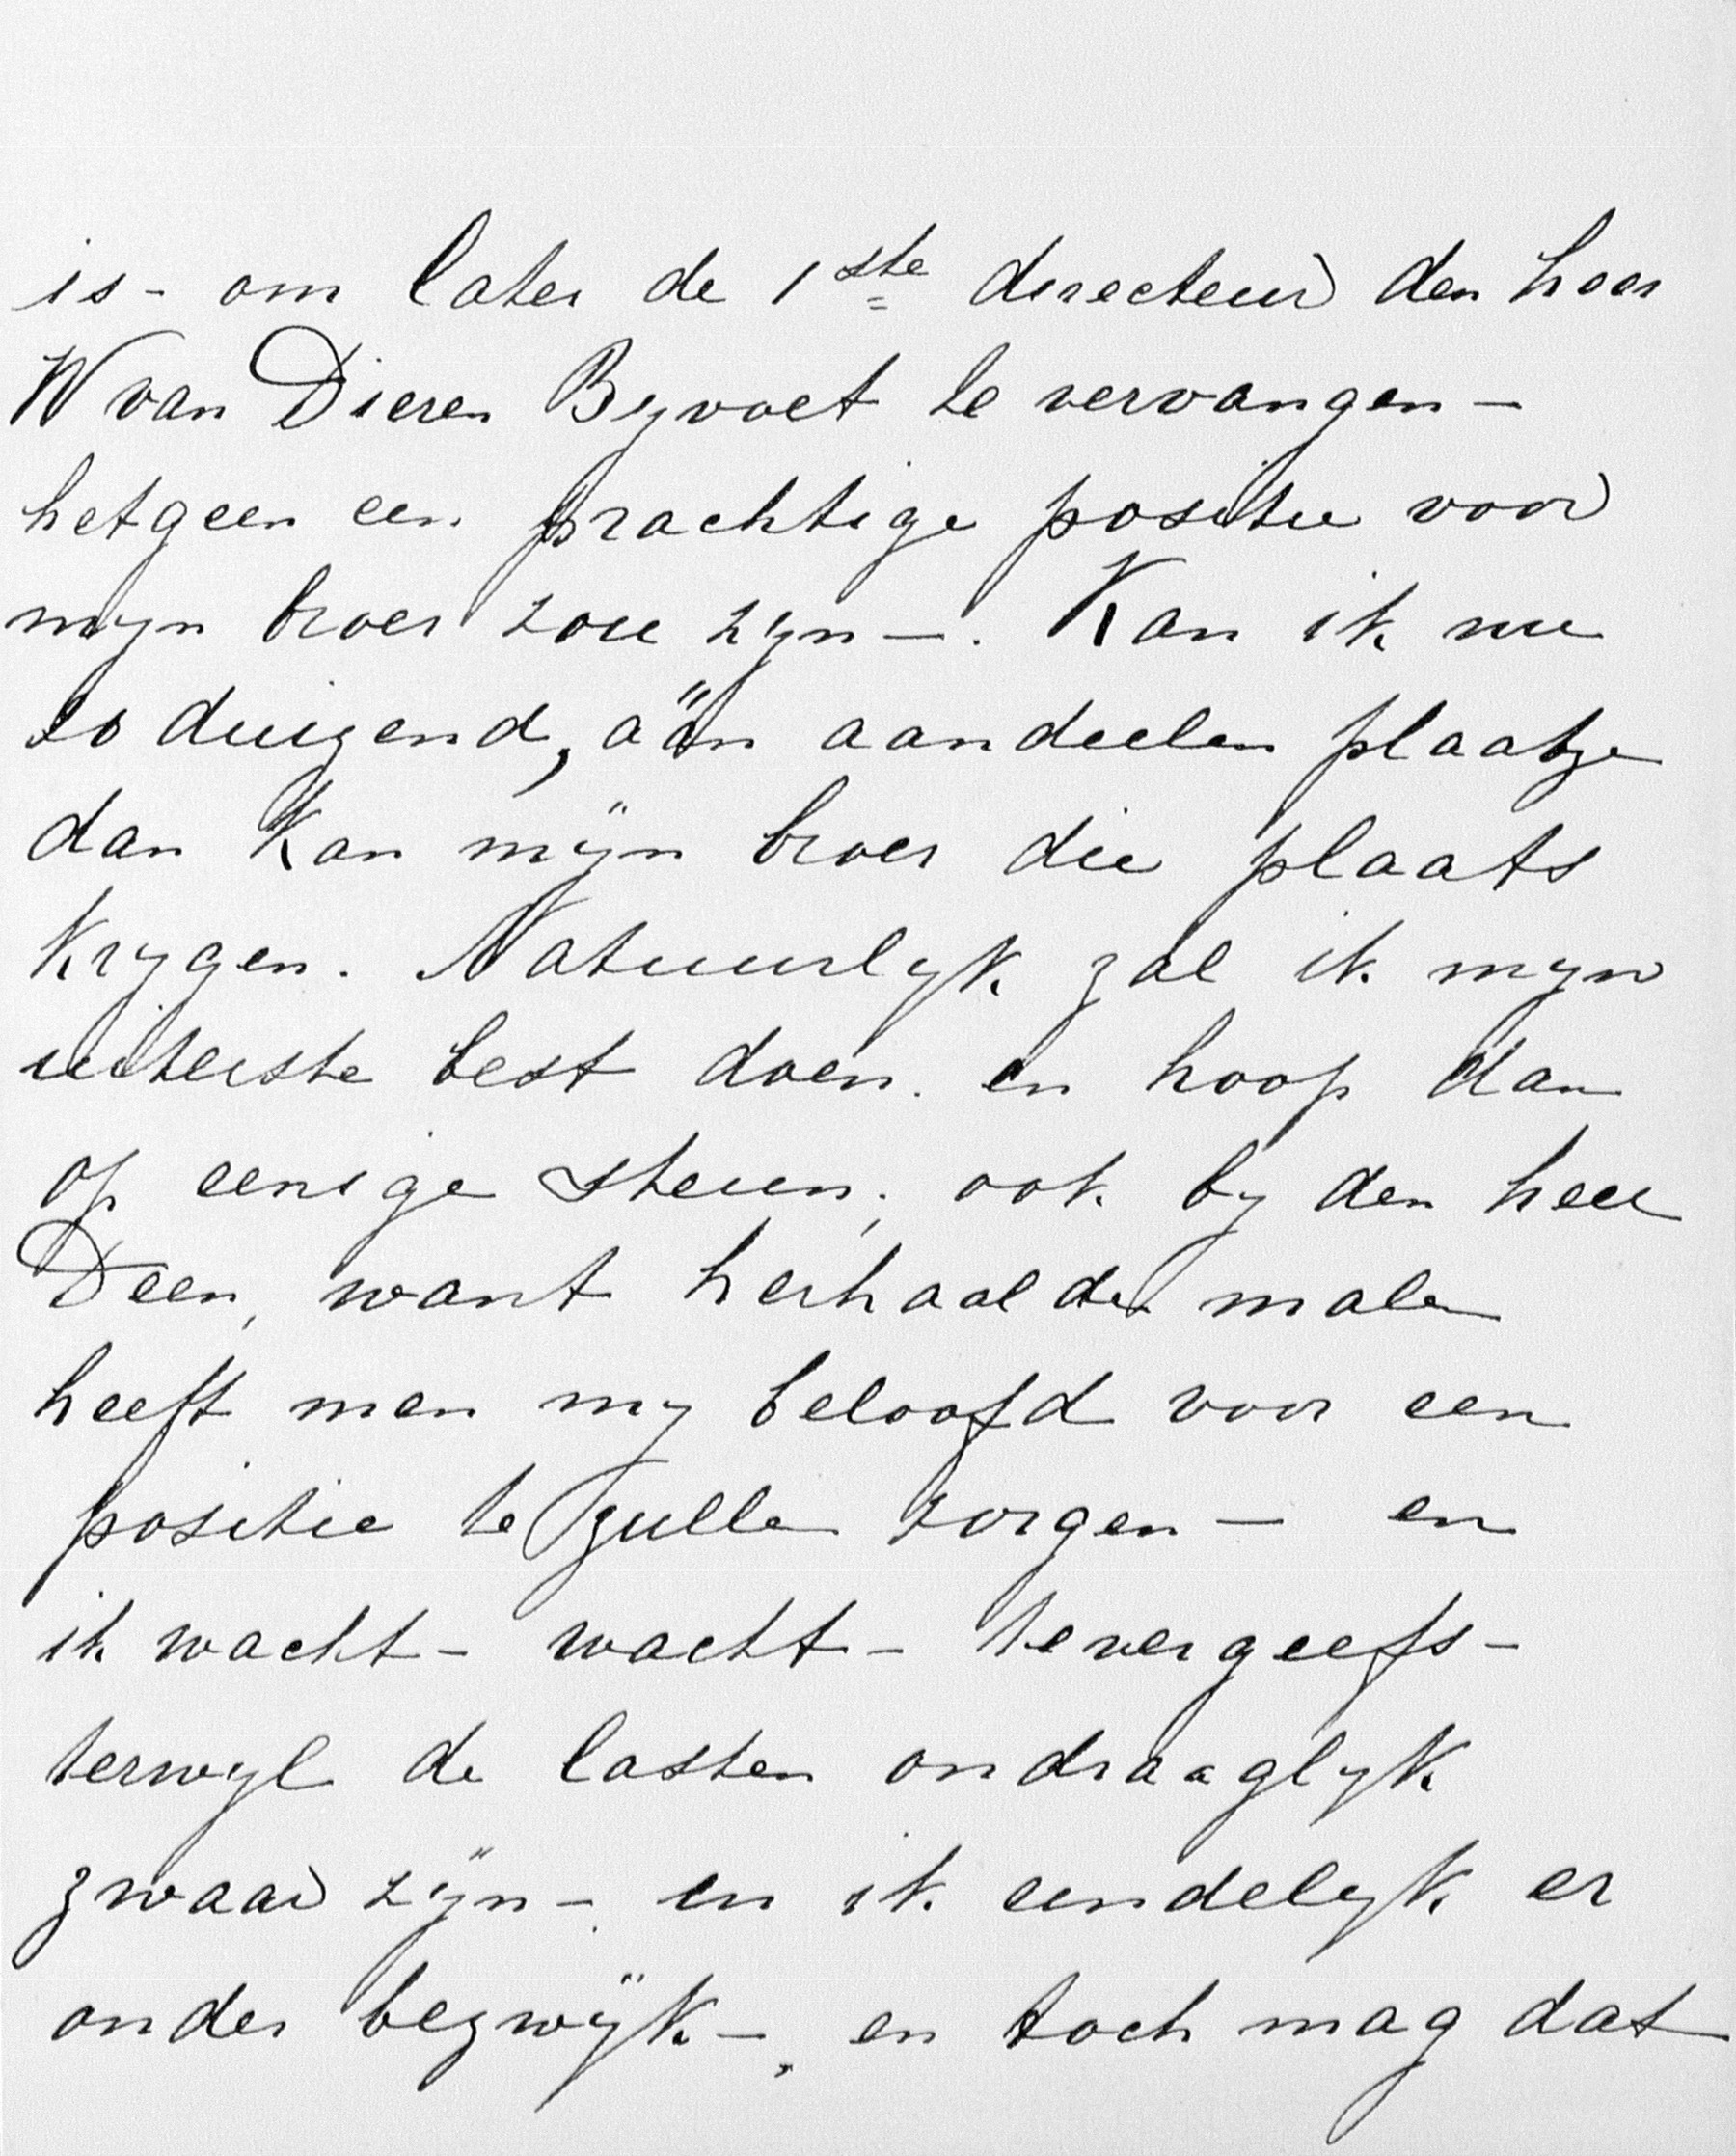 is - om later de 1ste directeur den heer
W van Dieren Byvoet te vervangen —
hetgeen een prachtige positie voor
myn broer zou zyn —. Kan ik nu
duizend, aän aandeelen plaatze
dan kan mÿn broer die plaats
krygen. Natuurlyk zal ik myn
uiterste best doen. en hoop dan
op eenige steun, ook by den heer
Deen, want herhaalde malen
heeft men my beloofd voor een
positie te zullen zorgen — en
ik wacht - wacht - tevergeefs -
terwyl de lasten ondraaglyk
zwaar zÿn - en ik eindelyk er
onder bezwÿk —, en toch mag dat